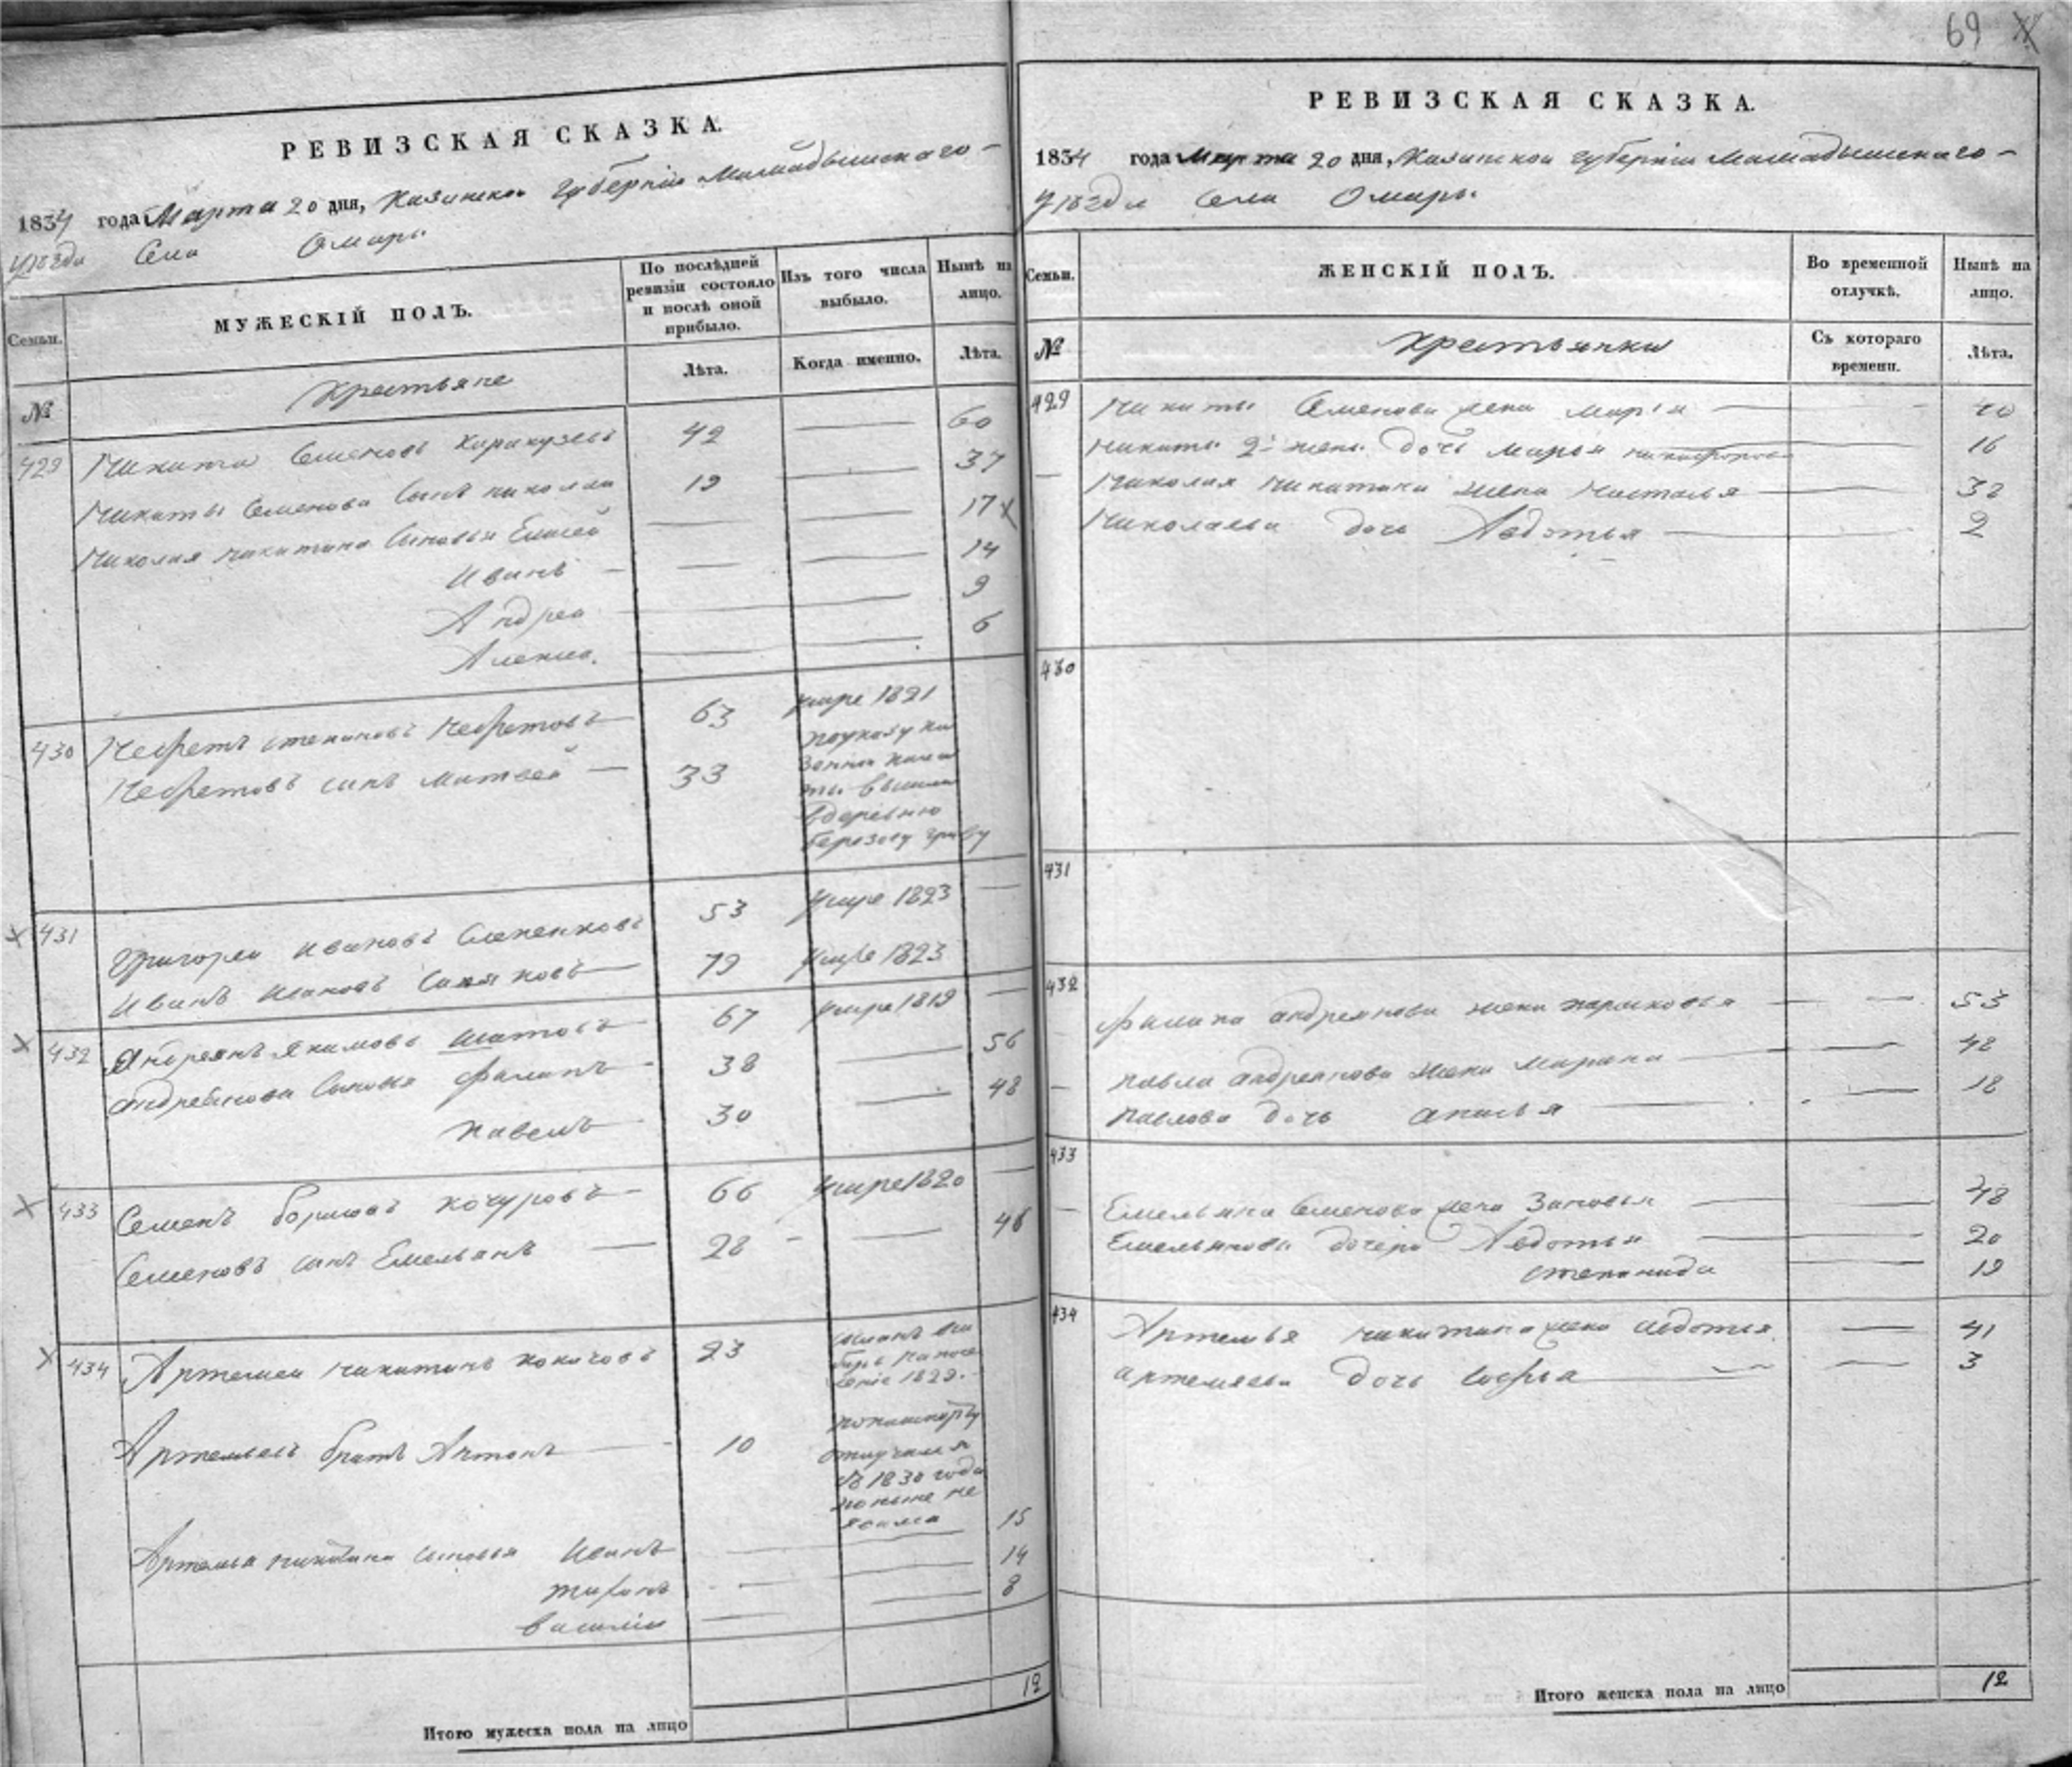 69
РЕВИЗСКАЯ СКАЗКА.
1834 года Марта 20 дня, Казанской губернии Мамадышскаго
уѣзда Села Омары
Семьи.
МУЖЕСКІЙ ПОЛЪ.
По послѣдней ревизіи состояло и послѣ оной прибыло.
Изъ того числа выбыло.
Нынѣ на лицо.
№
Крестьяне
Лѣта.
Когда именно.
Лѣта.
429 Никита Семеновъ 42 60
Никиты Семенова Сынъ николай 19 37
Николая никитина Сыновья Елисей 17
Иванъ 14
Андрей 9
Алексей 6
430 Нефретъ степановъ Нефретовъ 63 умре 1821
Нефретовъ сынъ матвей 33 по указу ка
зенной пала
ты
в деревню
березову гриву
431 Григорей Ивановъ 53 умре 1823
Иванъ 79 умре 1823
432 Андреянъ Якимовъ шатовъ 67 умре 1819
Андреянова Сыновья Филипъ 38 56
павелъ 30 48
433 Семенъ борисовъ кочуровъ 66 умре 1820
Семеновъ сынъ Емельянъ 28 46
434 Артемей никитинъ 23
на посе
ленiе 1829.
Артемьевъ братъ Антонъ 10
отлучился
въ 1830 года
поныне не
явился
Артемья никитина сыновья Иванъ 15
14
василий 8
Итого мужеска пола на лицо 12
РЕВИЗСКАЯ СКАЗКА.
1834 года Марта 20 дня, Казанской губернии Мамадышскаго
уѣзда Села Омары
Семьи.
ЖЕНСКІЙ ПОЛЪ.
Во временной отлучкѣ.
Нынѣ на лицо.
№
Крестьянки
Съ котораго времени.
Лѣта.
429 Никиты Семенова жена марья 40
Никиты 2й жены дочь марья 16
Николая никитина жена настасья 38
Николаева дочь Авдотья 2
430
431
432 Филипа андреянова жена парасковья 53
павла андреянова жена марина 48
павлова дочь 18
433 Емельяна Семенова жена Зиновья 48
Емельянова дочери Авдотья 20
степанида 19
434 Артемья никитина жена авдотья 41
артемьева дочь софья 3
Итого женска пола на лицо 12